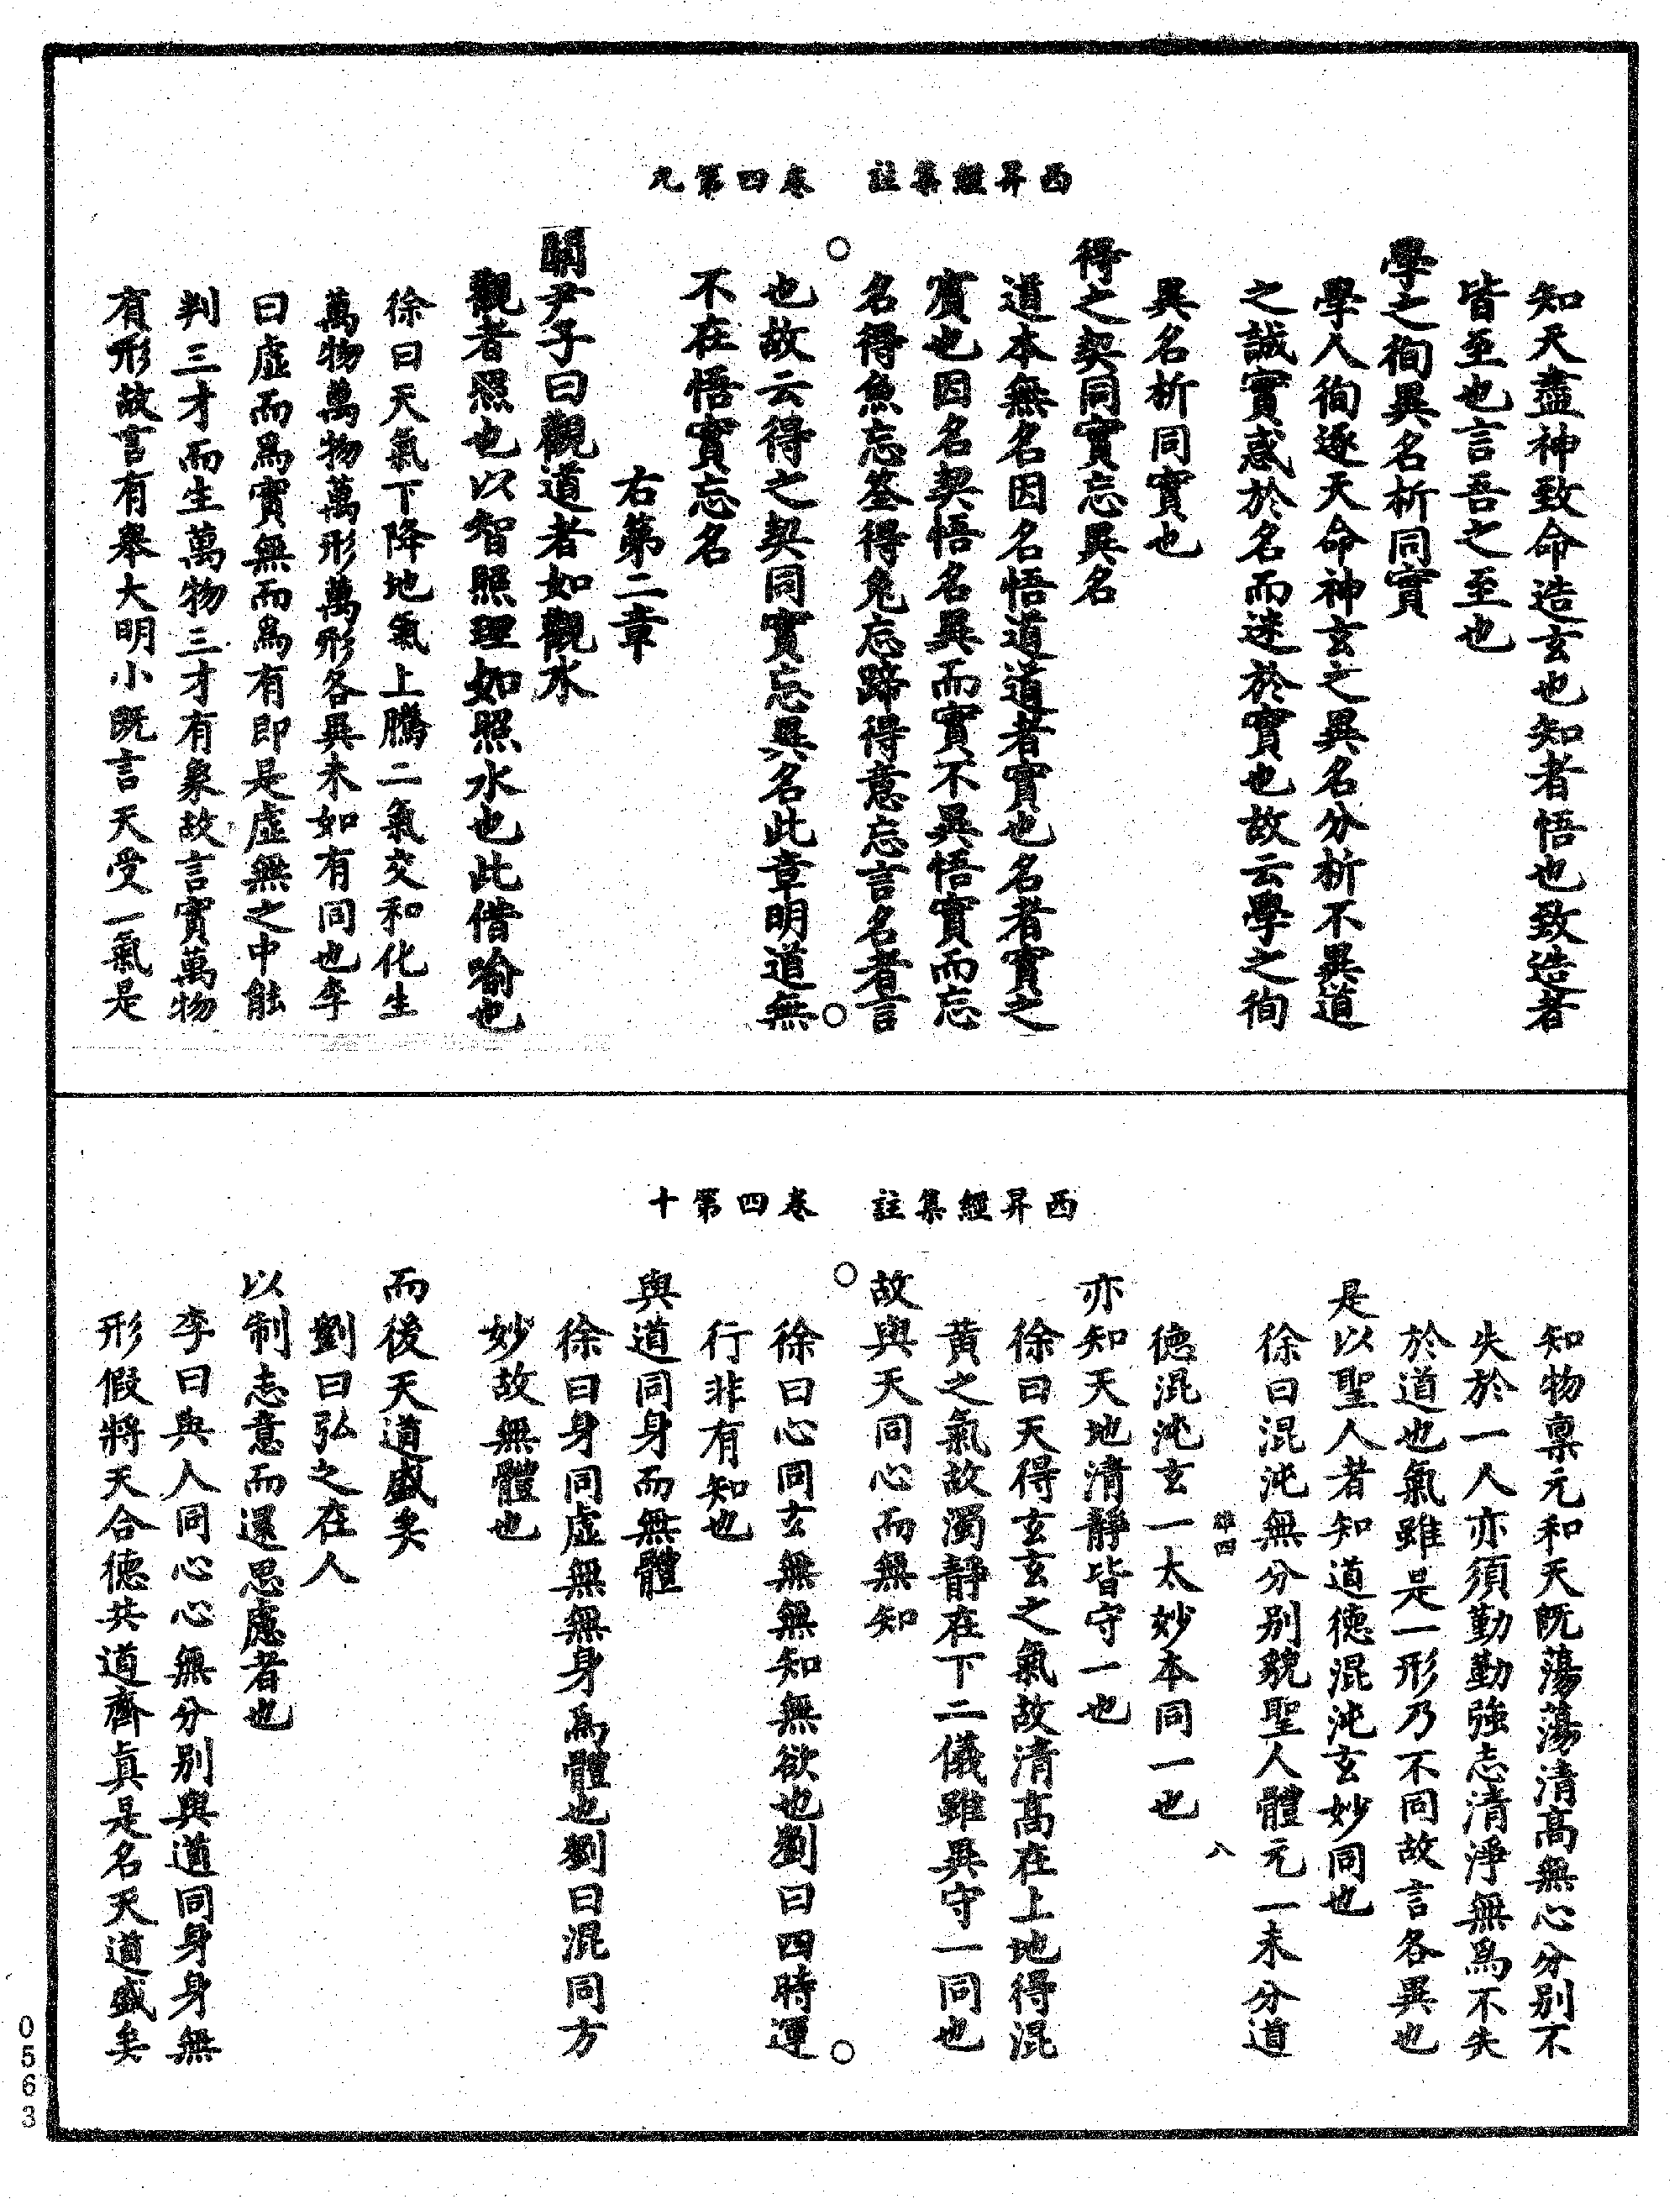 西昇經集註　卷四第九
知天盡神致命造玄也知者悟也致造者
皆至也言吾之至也
學之徇異名析同實
學人徇逐天命神玄之異名分析不異道
之誠實惑於名而迷於實也故云學之徇
異名析同實也
得之契同實忘異名
道本無名因名悟道道者實也名者實之
賓也因名契悟名異而實不異悟實而忘
名得魚忘筌得兔忘蹄得意忘言名者言
也故云得之契同實忘異名此章明道無
不在悟實忘名
右第二章
關尹子曰觀道者如觀水
觀者照也以智照理如照水也此借喻也
徐曰天氣下降地氣上騰二氣交和化生
萬物萬物萬形萬形各異木如有同也李
曰虛而爲實無而爲有即是虛無之中能
判三才而生萬物三才有象故言實萬物
有形故言有舉大明小既言天受一氣是
西昇經集註　卷四第十
知物稟元和天既蕩蕩清高無心分別不
失於一人亦須勤勤強志清淨無爲不失
於道也氣雖是一形乃不同故言各異也
是以聖人者知道德混沌玄妙同也
徐曰混沌無分別貌聖人體元一未分道
德混沌玄一太妙本同一也
亦知天地清靜皆守一也
徐曰天得玄玄之氣故清高在上地得混
黃之氣故濁靜在下二儀雖異守一同也
故與天同心而無知
徐曰心同玄無無知無欲也劉曰四時運
行非有知也
與道同身而無體
徐曰身同虛無無身爲體也劉曰混同方
妙故無體也
而後天道盛矣
劉曰弘之在人
以制志意而還思慮者也
李曰與人同心心無分別與道同身身無
形假將天合德共道齊真是名天道盛矣
八
0563